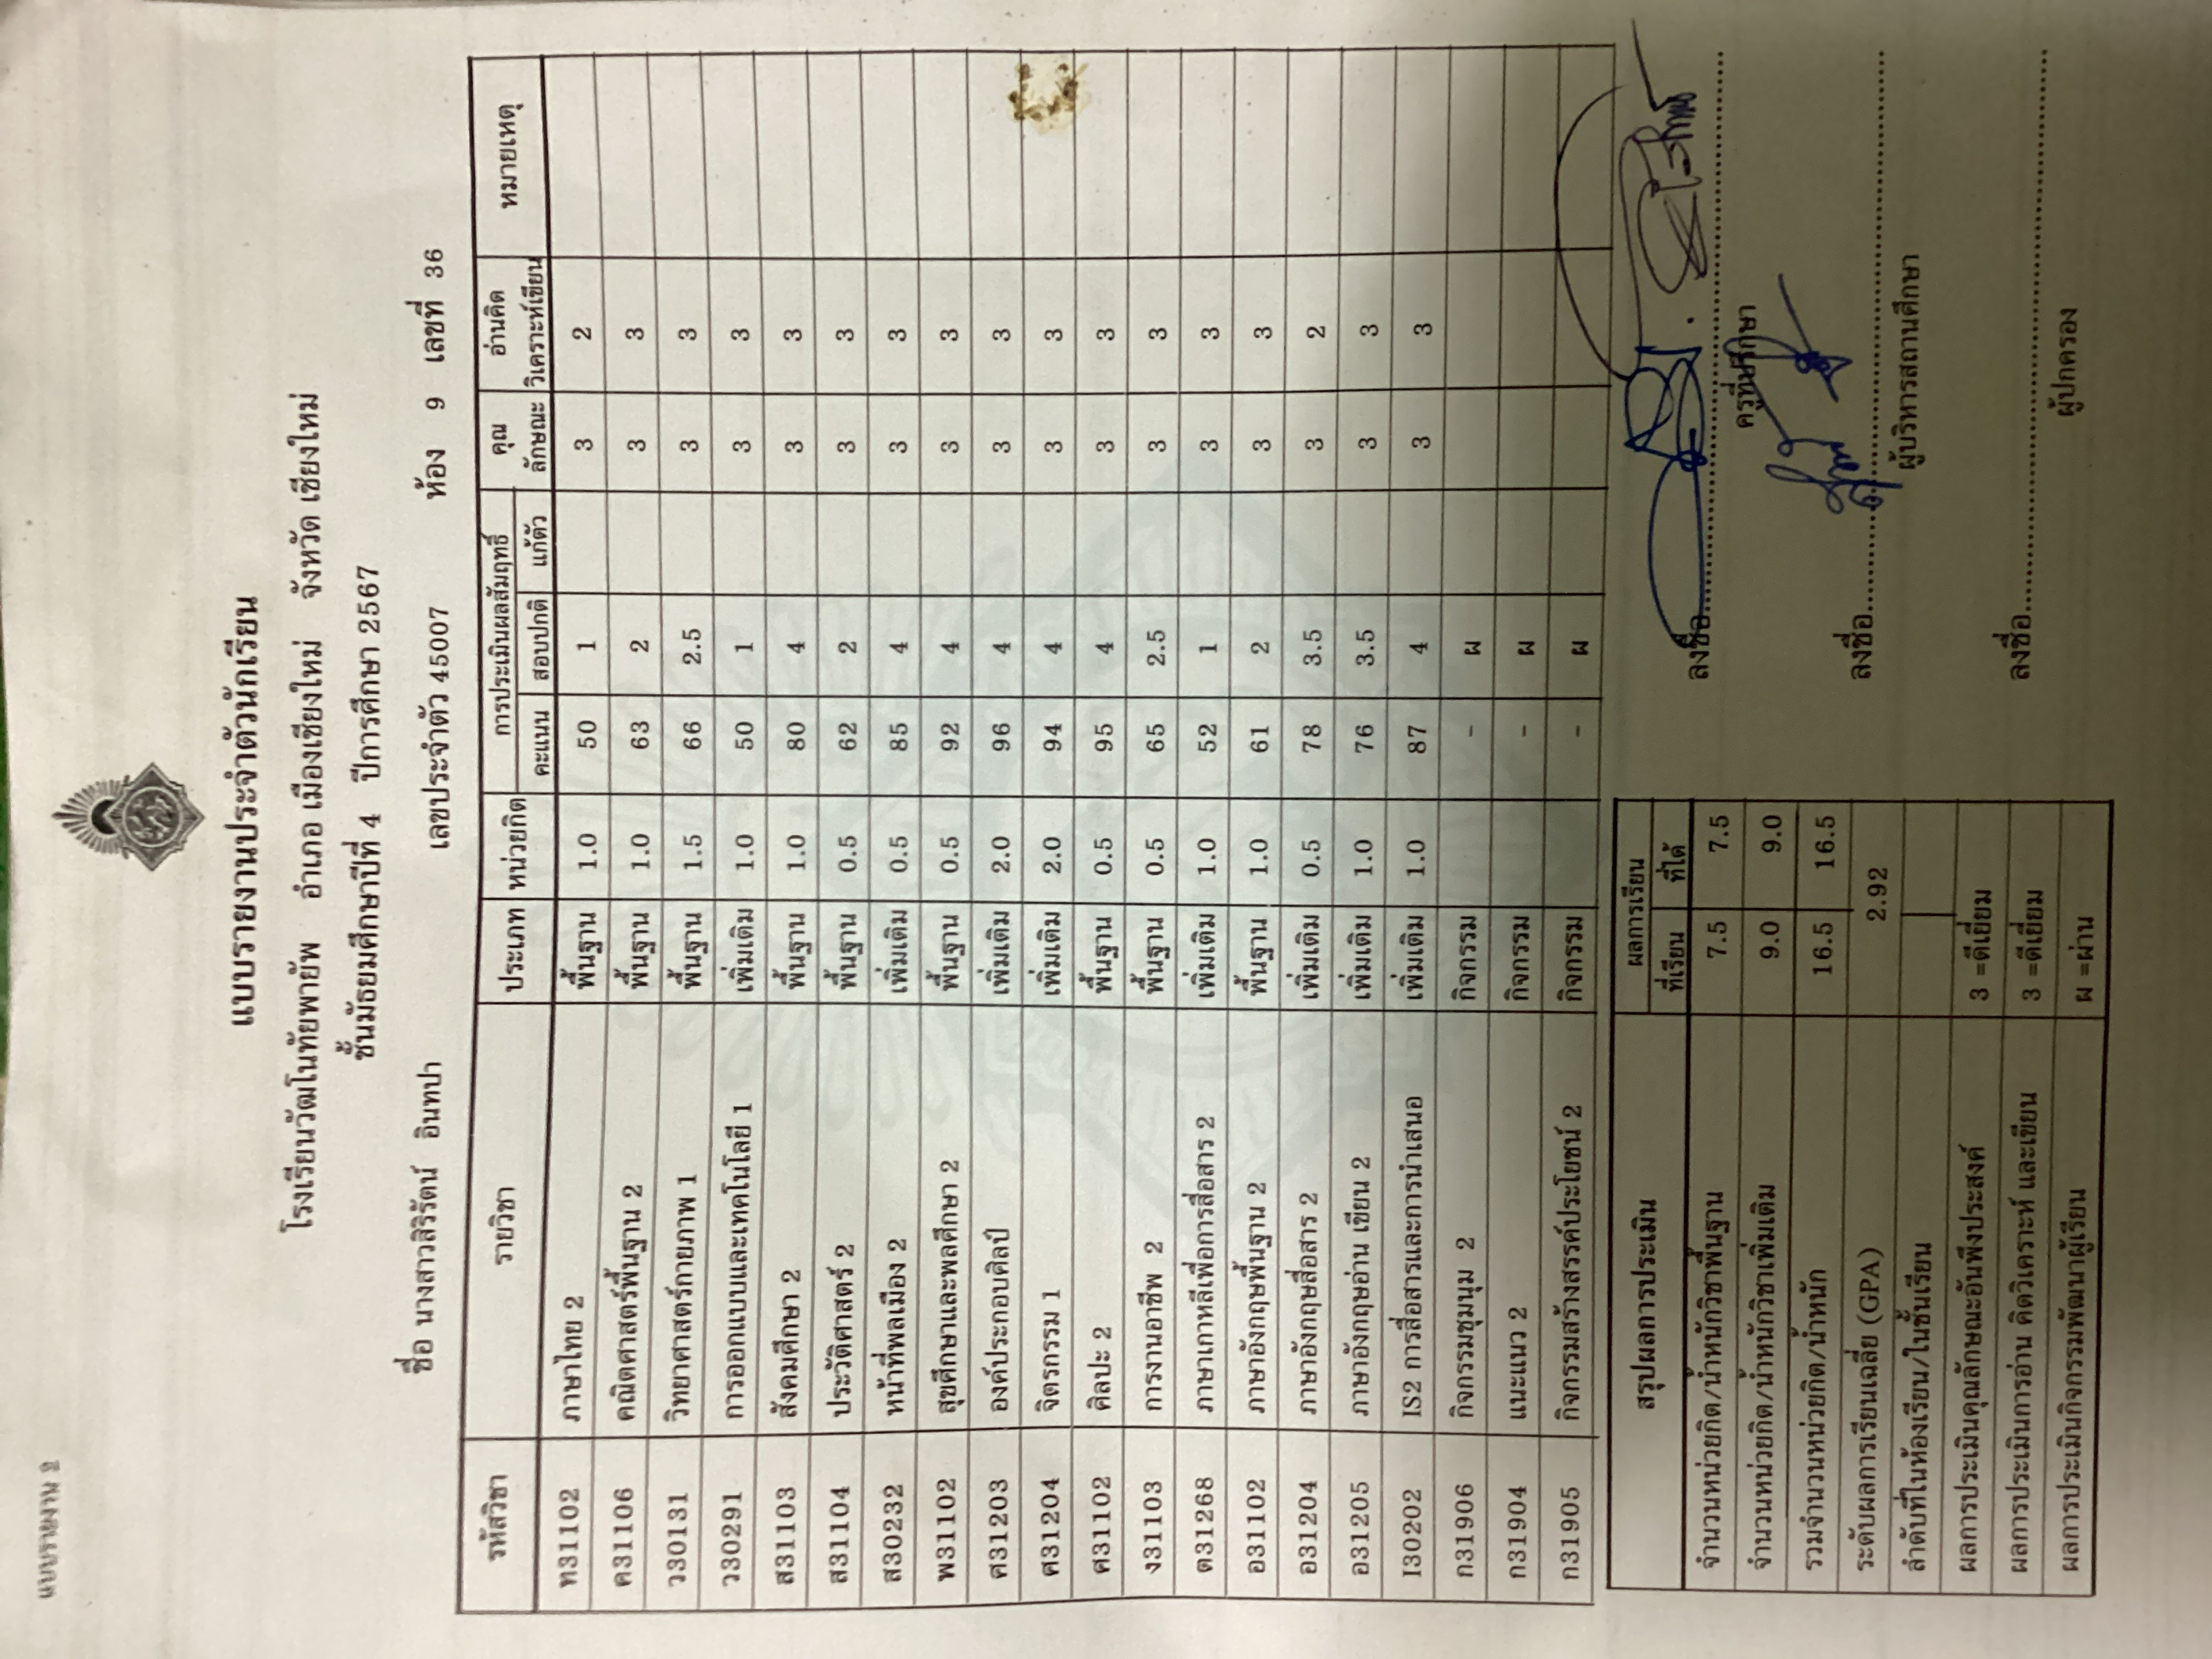 แบบรายงาน 2
แบบรายงานประจำตัวนักเรียน
โรงเรียนวัฒโนทัยพายัพ อำเภอ เมืองเชียงใหม่ จังหวัด เชียงใหม่
ชั้นมัธยมศึกษาปีที่ 4 ปีการศึกษา 2567
ชื่อ นางสาวสิริรัตน์ อินทปา เลขประจำตัว 45007 ห้อง 9 เลขที่ 36
รหัสวิชา รายวิชา ประเภท หน่วยกิต การประเมินผลสัมฤทธิ์ คุณลักษณะ อ่านคิดวิเคราะห์เขียน หมายเหตุ
คะแนน สอบปกติ แก้ตัว
ท31102 ภาษาไทย 2 พื้นฐาน 1.0 50 1 3 2
ค31106 คณิตศาสตร์พื้นฐาน 2 พื้นฐาน 1.0 63 2 3 3
ว30131 วิทยาศาสตร์กายภาพ 1 พื้นฐาน 1.5 66 2.5 3 3
ว30291 การออกแบบและเทคโนโลยี 1 เพิ่มเติม 1.0 50 1 3 3
ส31103 สังคมศึกษา 2 พื้นฐาน 1.0 80 4 3 3
ส31104 ประวัติศาสตร์ 2 พื้นฐาน 0.5 62 2 3 3
ส30232 หน้าที่พลเมือง 2 เพิ่มเติม 0.5 85 4 3 3
พ31102 สุขศึกษาและพลศึกษา 2 พื้นฐาน 0.5 92 4 3 3
ศ31203 องค์ประกอบศิลป์ เพิ่มเติม 2.0 96 4 3 3
ศ31204 จิตรกรรม 1 เพิ่มเติม 2.0 94 4 3 3
ศ31102 ศิลปะ 2 พื้นฐาน 0.5 95 4 3 3
ง31103 การงานอาชีพ 2 พื้นฐาน 0.5 65 2.5 3 3
ต31268 ภาษาเกาหลีเพื่อการสื่อสาร 2 เพิ่มเติม 1.0 52 1 3 3
อ31102 ภาษาอังกฤษพื้นฐาน 2 พื้นฐาน 1.0 61 2 3 3
อ31204 ภาษาอังกฤษสื่อสาร 2 เพิ่มเติม 0.5 78 3.5 3 2
อ31205 ภาษาอังกฤษอ่าน เขียน 2 เพิ่มเติม 1.0 76 3.5 3 3
I30202 IS2 การสื่อสารและการนำเสนอ เพิ่มเติม 1.0 87 4 3 3
ก31906 กิจกรรมชุมนุม 2 กิจกรรม - ผ
ก31904 แนะแนว 2 กิจกรรม - ผ
ก31905 กิจกรรมสร้างสรรค์ประโยชน์ 2 กิจกรรม - ผ
สรุปผลการประเมิน ผลการเรียน
ที่เรียน ที่ได้
จำนวนหน่วยกิต/น้ำหนักวิชาพื้นฐาน 7.5 7.5
จำนวนหน่วยกิต/น้ำหนักวิชาเพิ่มเติม 9.0 9.0
รวมจำนวนหน่วยกิต/น้ำหนัก 16.5 16.5
ระดับผลการเรียนเฉลี่ย (GPA) 2.92
ลำดับที่ในห้องเรียน/ในชั้นเรียน
ผลการประเมินคุณลักษณะอันพึงประสงค์ 3 =ดีเยี่ยม
ผลการประเมินการอ่าน คิดวิเคราะห์ และเขียน 3 =ดีเยี่ยม
ผลการประเมินกิจกรรมพัฒนาผู้เรียน ผ =ผ่าน
ลงชื่อ
ครูที่ปรึกษา
ลงชื่อ
ผู้บริหารสถานศึกษา
ลงชื่อ
ผู้ปกครอง